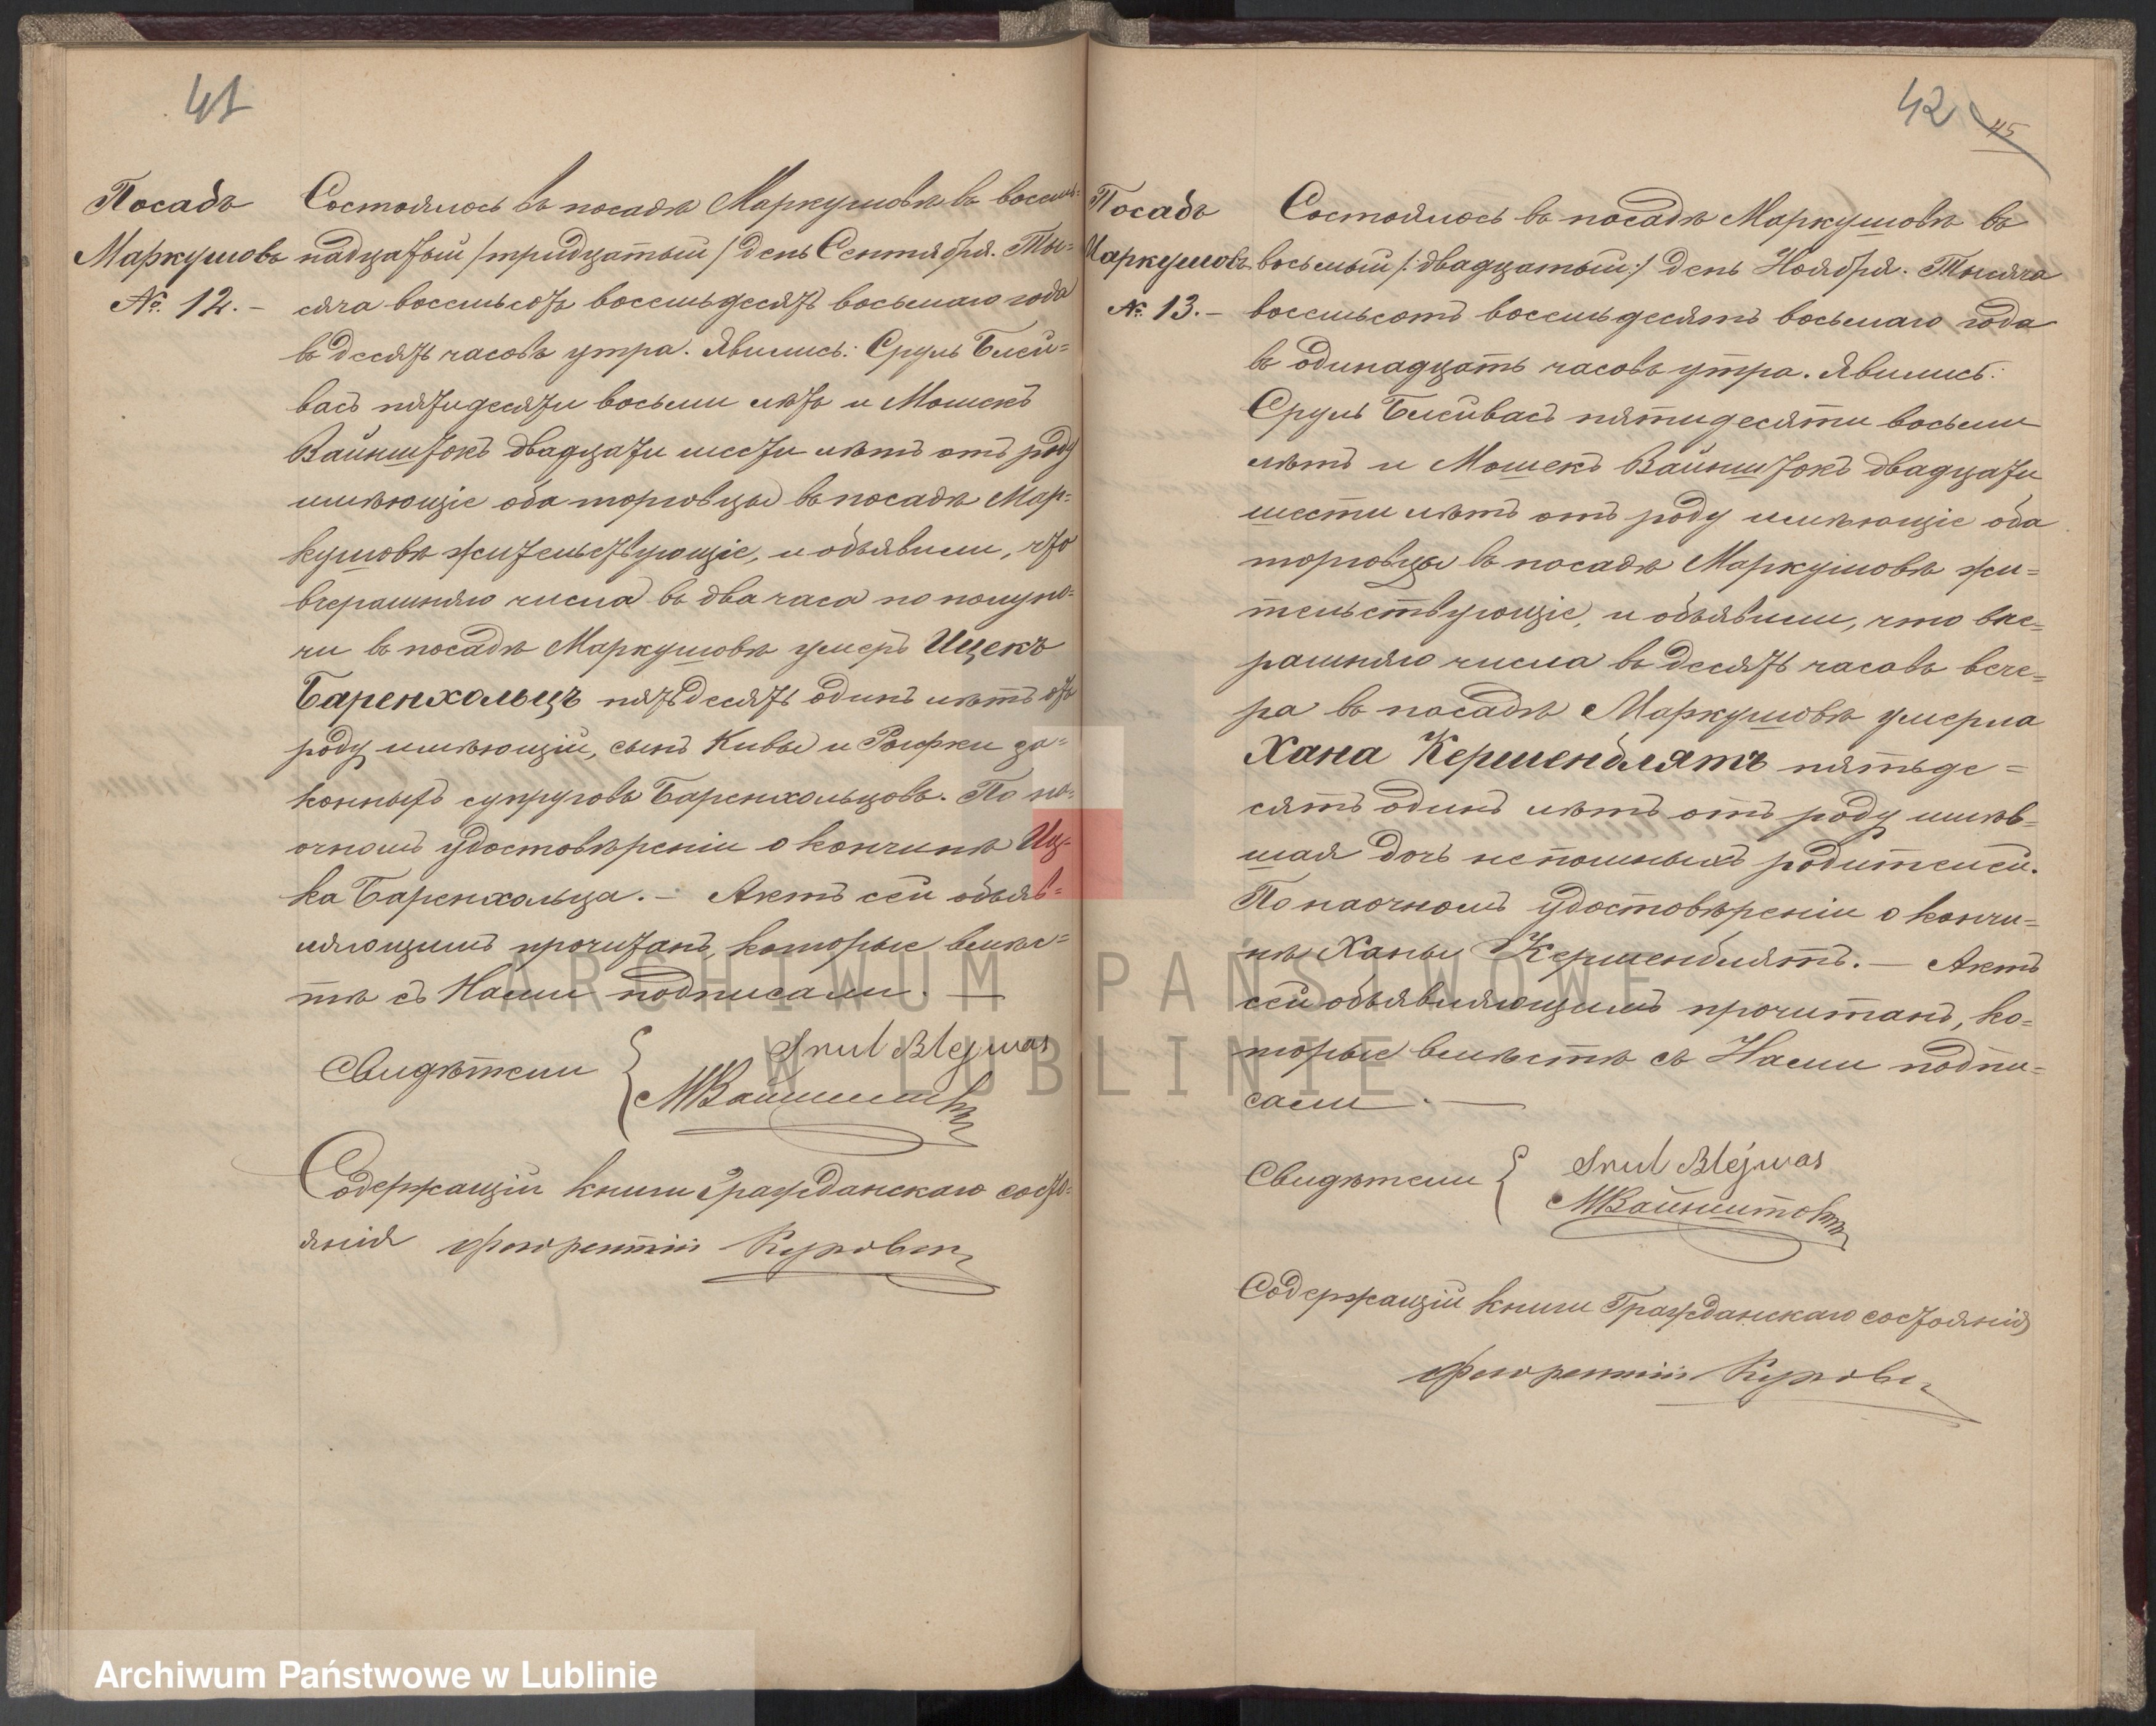 41
Посадъ
Маркушовъ
№ 12. –
Состоялось въ посадѣ Маркушовѣ въ восем=
надцатый /тридцатый/ день Сентября. Ты=
сяча восемьсотъ восемьдесятъ восьмаго года
въ десять часовъ утра. Явились: Сруль Блей=
васъ пятидесяти восьми лѣтъ и Мошекъ
Вайнштокъ двадцати шести лѣтъ отъ роду
имѣющіе оба торговцы въ посадѣ Мар=
кушовѣ жительствующіе, и объявили, что
вчерашняго числа въ два часа по полуно=
чи въ посадѣ Маркушовѣ умеръ Ицекъ
Баренхольцъ пятьдесятъ одинъ лѣтъ отъ
роду имѣющій, сынъ Кивы и Рыфки за=
конныхъ супруговъ Баренхольцовъ. По на=
очномъ удостовѣреніи о кончинѣ Иц=
ка Баренхольца. – Актъ сей объяв=
ляющимъ прочитанъ, которые вмѣс=
тѣ съ Нами подписали. —
Свидѣтели
Srul Blejwas
МВайнштокъ
Содержащій книги Гражданскаго состо=
янія Флорентій
42
45
Посадъ
Маркушовъ
№ 13. –
Состоялось въ посадѣ Маркушовѣ въ
восьмый /:двадцатый:/ день Ноября. Тысяча
восемьсотъ восемьдесятъ восьмаго года
въ одинадцать часовъ утра. Явились:
Сруль Блейвасъ пятидесяти восьми
лѣтъ и Мошекъ Вайнштокъ двадцати
шести лѣтъ отъ роду имѣющіе оба
торговцы въ посадѣ Маркушовѣ жи=
тельствующіе, и объявили, что вче=
рашняго числа въ десять часовъ вече=
ра въ посадѣ Маркушовѣ умерла
Хана Кершенблятъ пятьде=
сятъ одинъ лѣтъ отъ роду имѣв=
шая дочь неспомныхъ родителей.
По наочномъ удостовѣреніи о кончи=
нѣ Ханы Кершенблятъ. – Актъ
сей объявляющимъ прочитанъ, ко=
торые вмѣстѣ съ Нами подпи=
сали. —
Свидѣтели
Srul Blejwas
МВайнштокъ
Содержащій книги Гражданскаго состоянія
Флорентій
ARCHIWUM PAŃSTWOWE
W LUBLINIE
Archiwum Państwowe w Lublinie